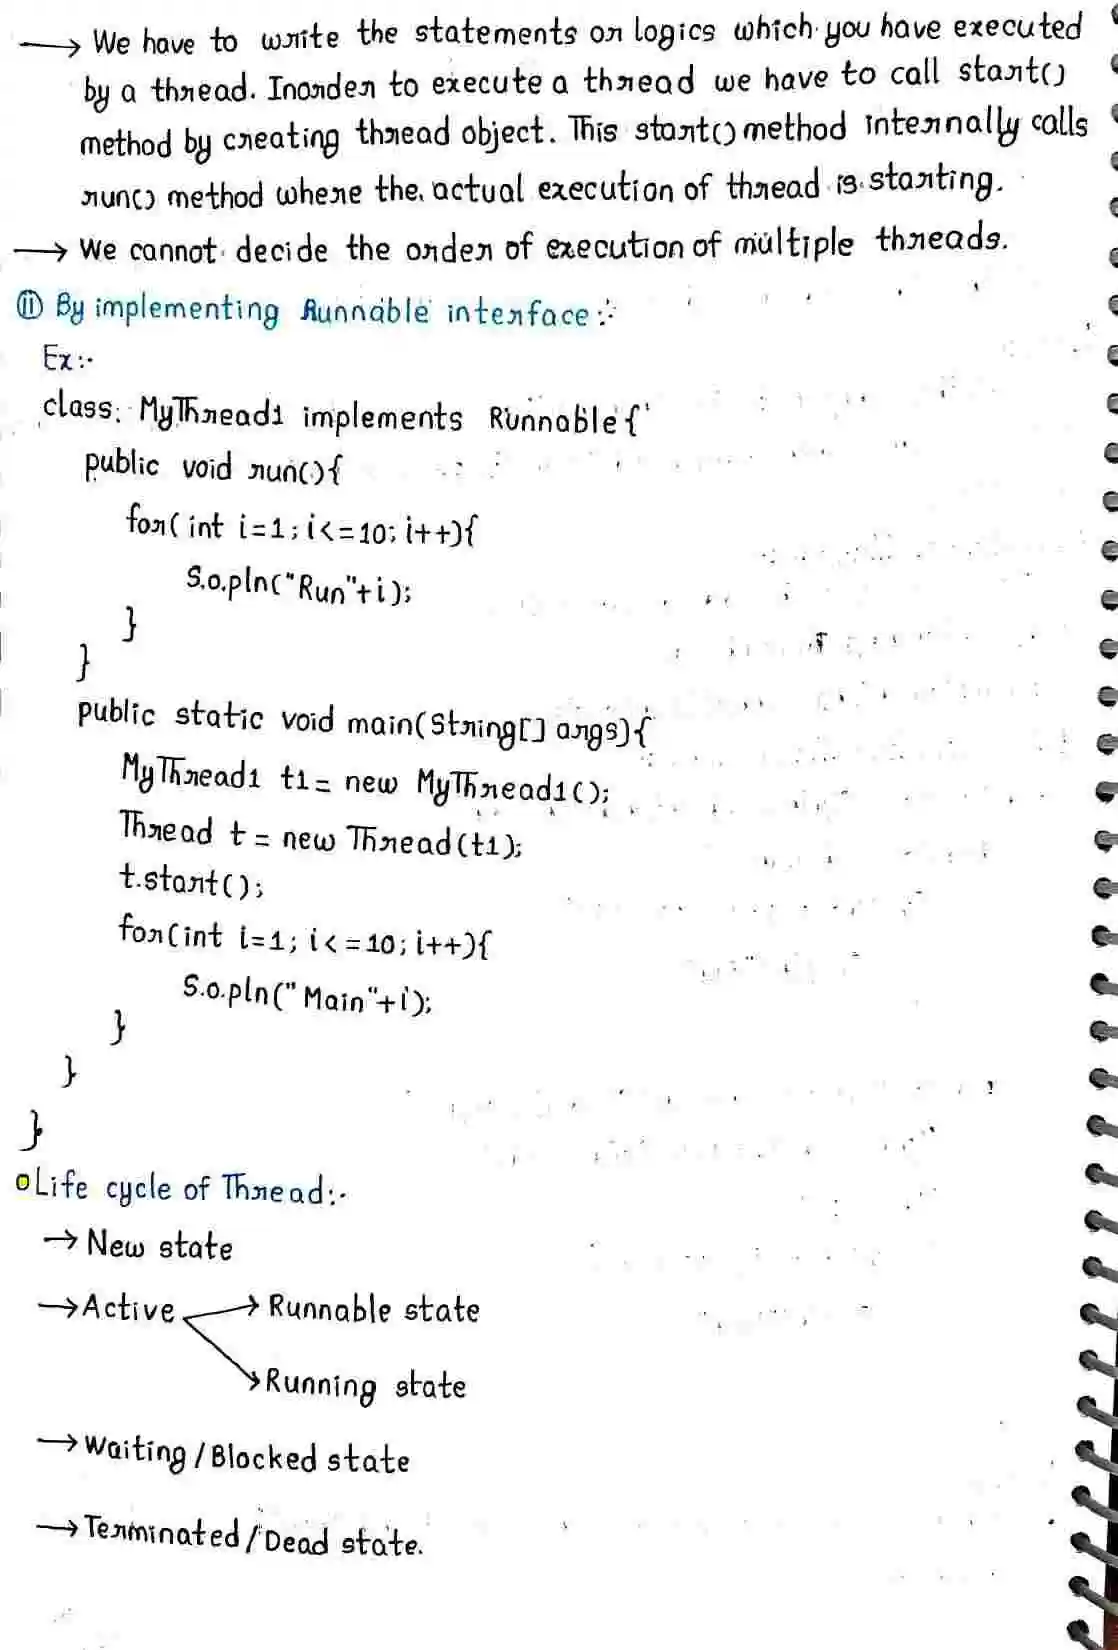 → We have to write the statements or logics which you have executed
by a thread. Inorder to execute a thread we have to call start()
method by creating thread object. This start() method internally calls
run() method where the actual execution of thread is starting.
→ We cannot decide the order of execution of multiple threads.
(ii) By implementing Runnable interface:-
Ex:-
class MyThread1 implements Runnable{
public void run(){
for(int i=1; i<=10; i++){
S.o.pln("Run"+i);
}
}
public static void main(String[] args){
MyThread1 t1= new MyThread1();
Thread t = new Thread(t1);
t.start();
for(int i=1; i<=10; i++){
S.o.pln("Main"+i);
}
}
}
Life cycle of Thread:-
→ New state
→ Active → Runnable state
→ Running state
→ Waiting/Blocked state
→ Terminated/Dead state.